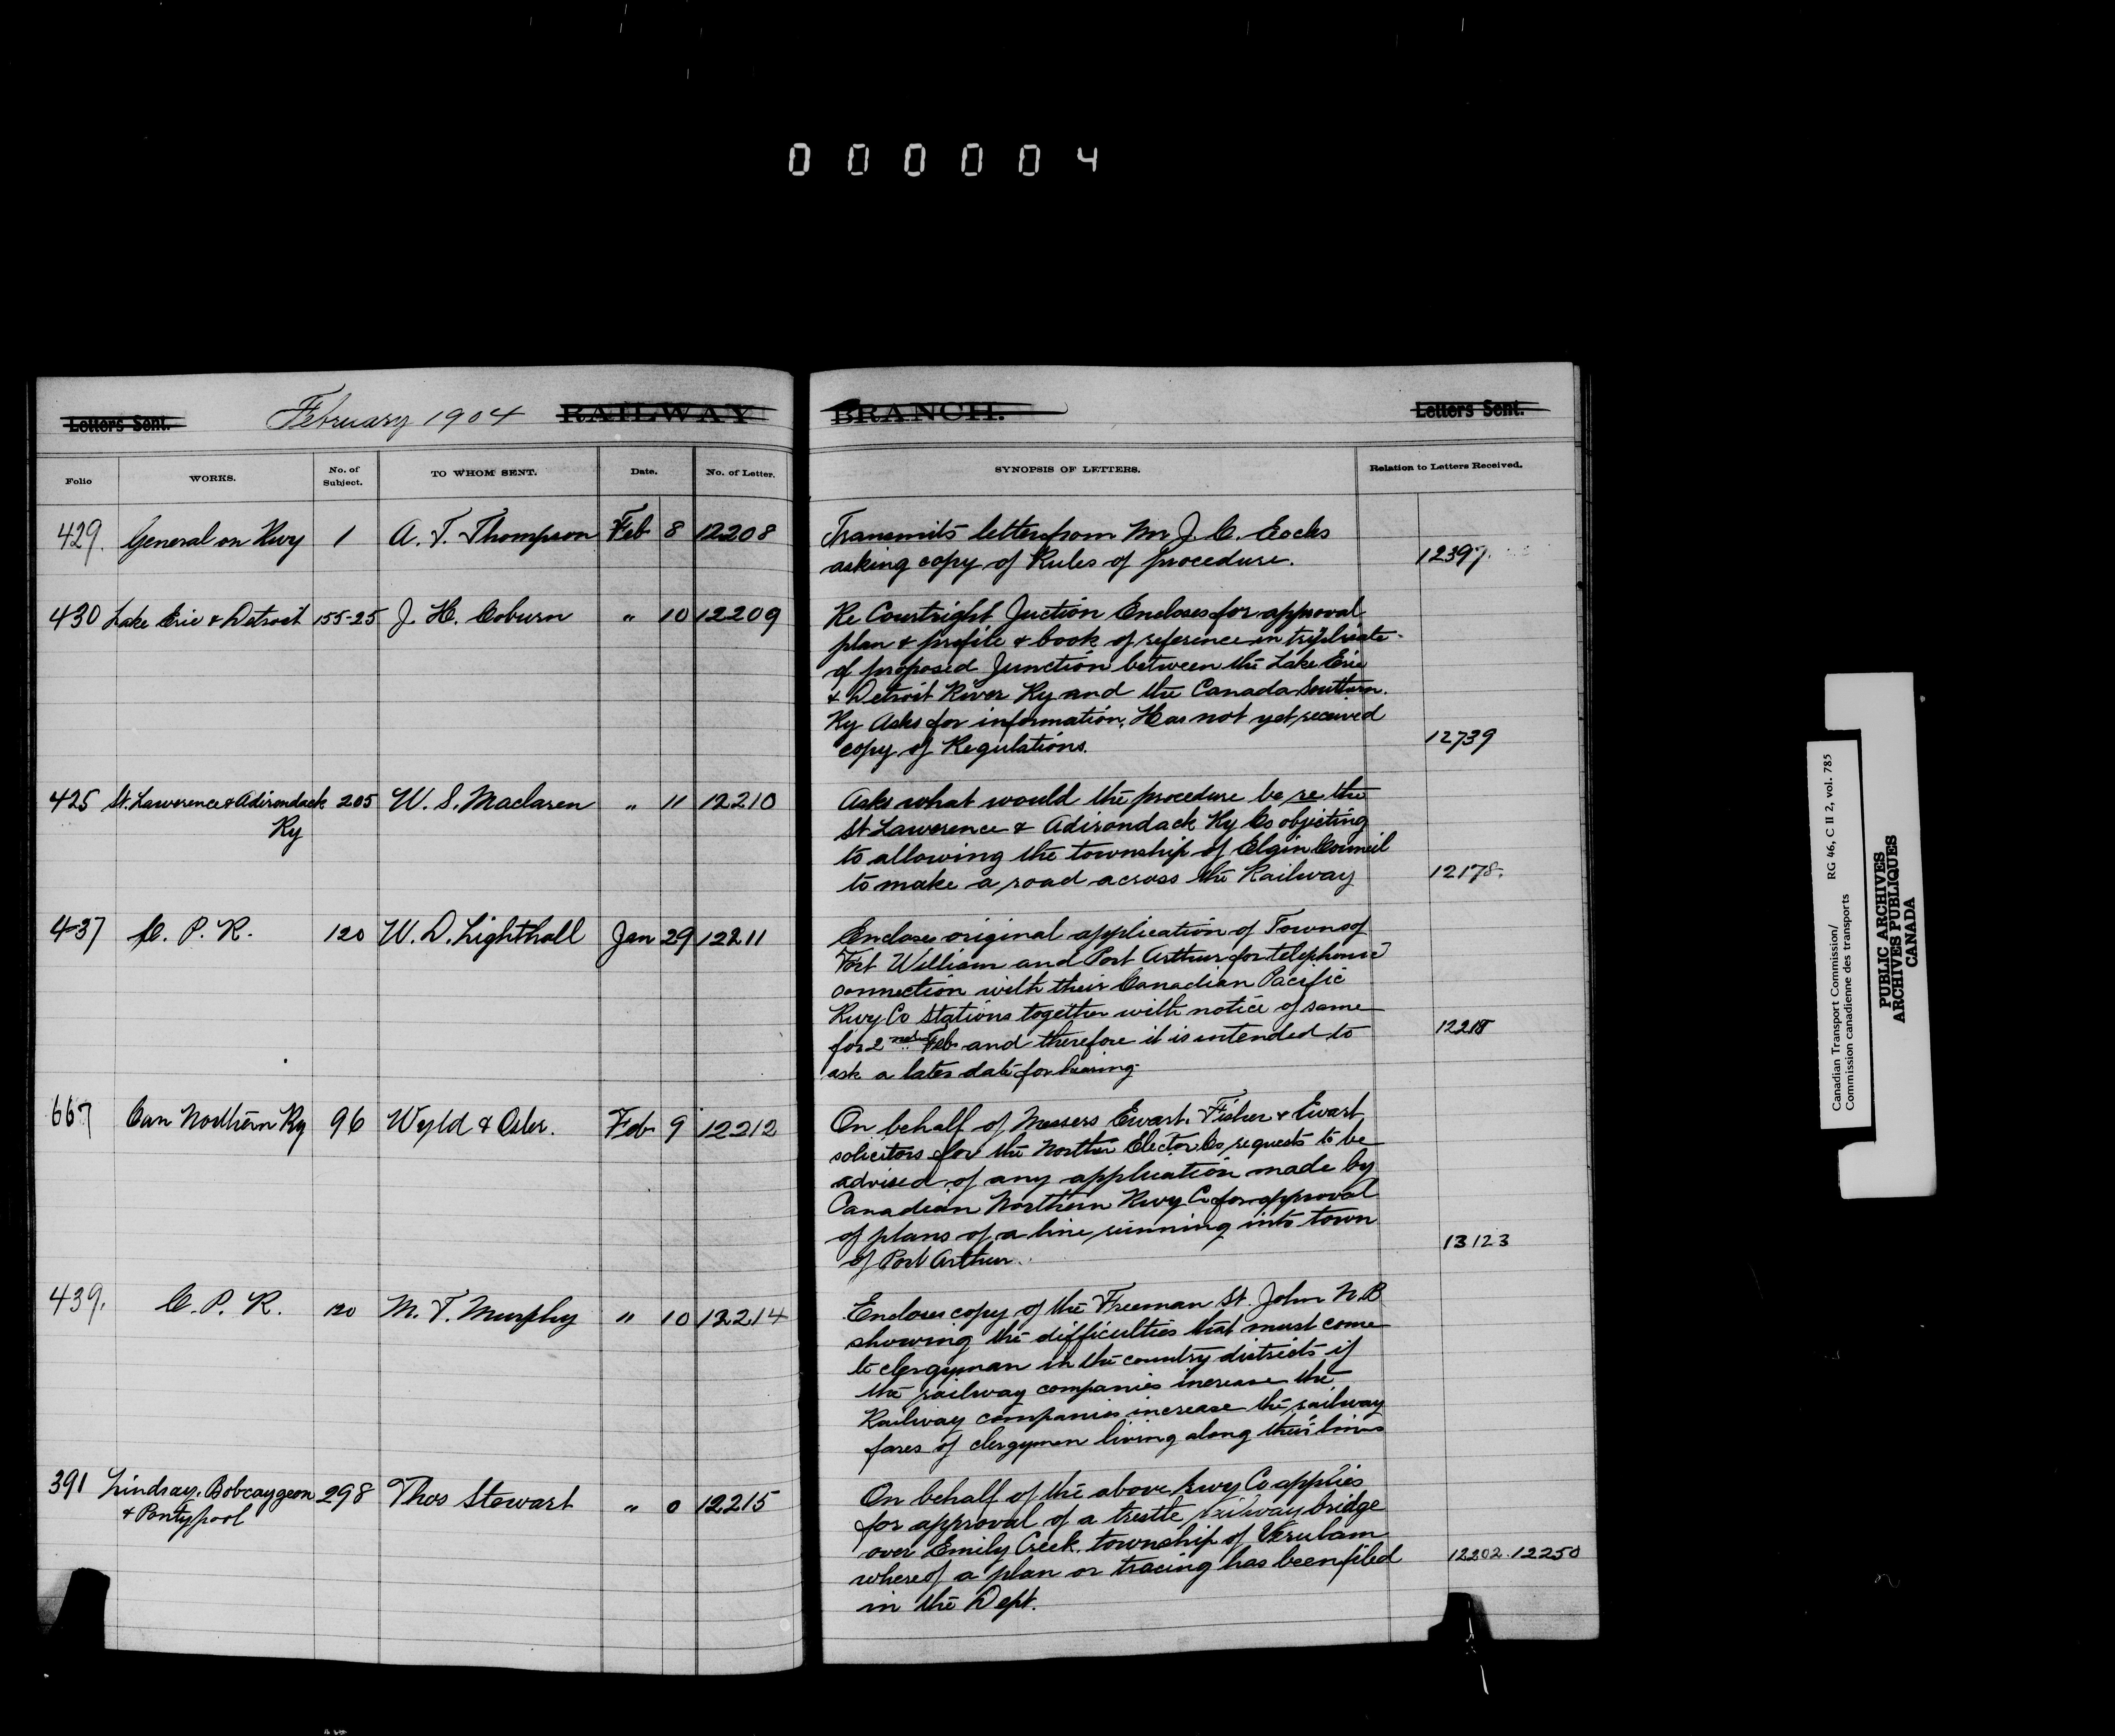 000004
Letters Sent. February 1904 RAILWAY BRANCH. Letters Sent.
Folio WORKS. No. of Subject. TO WHOM SENT. Date. No. of Letter. SYNOPSIS OF LETTERS. Relation to Letters Received.
429. General on Rwy 1 A. T. Thompson Feb 8 12208 Transmits letter from Mr J. C. Eocks
asking copy of Rules of procedure. 12397.
430 Lake Erie & Detroit 155-25 J. H. Coburn " 10 12209 Re Courtright Juction Encloses for approval
plan & profile & book of reference in triplicate-
of proposed Junction between the Lake Erie
& Detroit River Ry and the Canada Southern.
Ry Asks for information, Has not yet received
copy of Regulations. 12739
425 St. Lawerence & Adirondack Ry 205 W. S. Maclaren " 11 12210 Asks what would the procedure be re the
St Lawerence & Adirondack Ry Co objecting
to allowing the township of Elgin Council
to make a road across the Railway 12178.
437 C. P. R. 120 W. D. Lighthall Jan 29 12211 Encloses original application of Towns of
Fort William and Port Arthur for telephonic
connection with their Canadian Pacific
Rwy Co Stations together with notice of same
for 2nd Feb and therefore it is intended to
ask a later date for hearing
667 Can Northern Ry 96 Wyld & Osler. Feb 9 12212 On behalf of Messers Ewart, Fisher & Ewart
solicitors for the Northern Elector Co, requests to be
advised of any application made by
Canadian Northern Rwy Co for approval
of plans of a line running into town
of Port Arthur. 13123
439. C. P. R. 120 M. T. Murphy " 10 12214 Encloses copy of the Freeman St. John N.B
showing the difficulties that must come
to clergyman in the country districts if
the railway companies increase the
Railway companies increase the railway
fares of clergymen living along their lines
391 Lindsay, Bobcaygeon & Pontypool 298 Thos Stewart " 0 12215 On behalf of the above Rwy Co applies
for approval of a trestle railway bridge
over Emily Creek, township of Verulam
whereof a plan or tracing has been filed
in the Dept. 12202. 12250
Canadian Transport Commission/ RG 46, C II 2, vol. 785
Commission canadienne des transports
PUBLIC ARCHIVES
ARCHIVES PUBLIQUES
CANADA